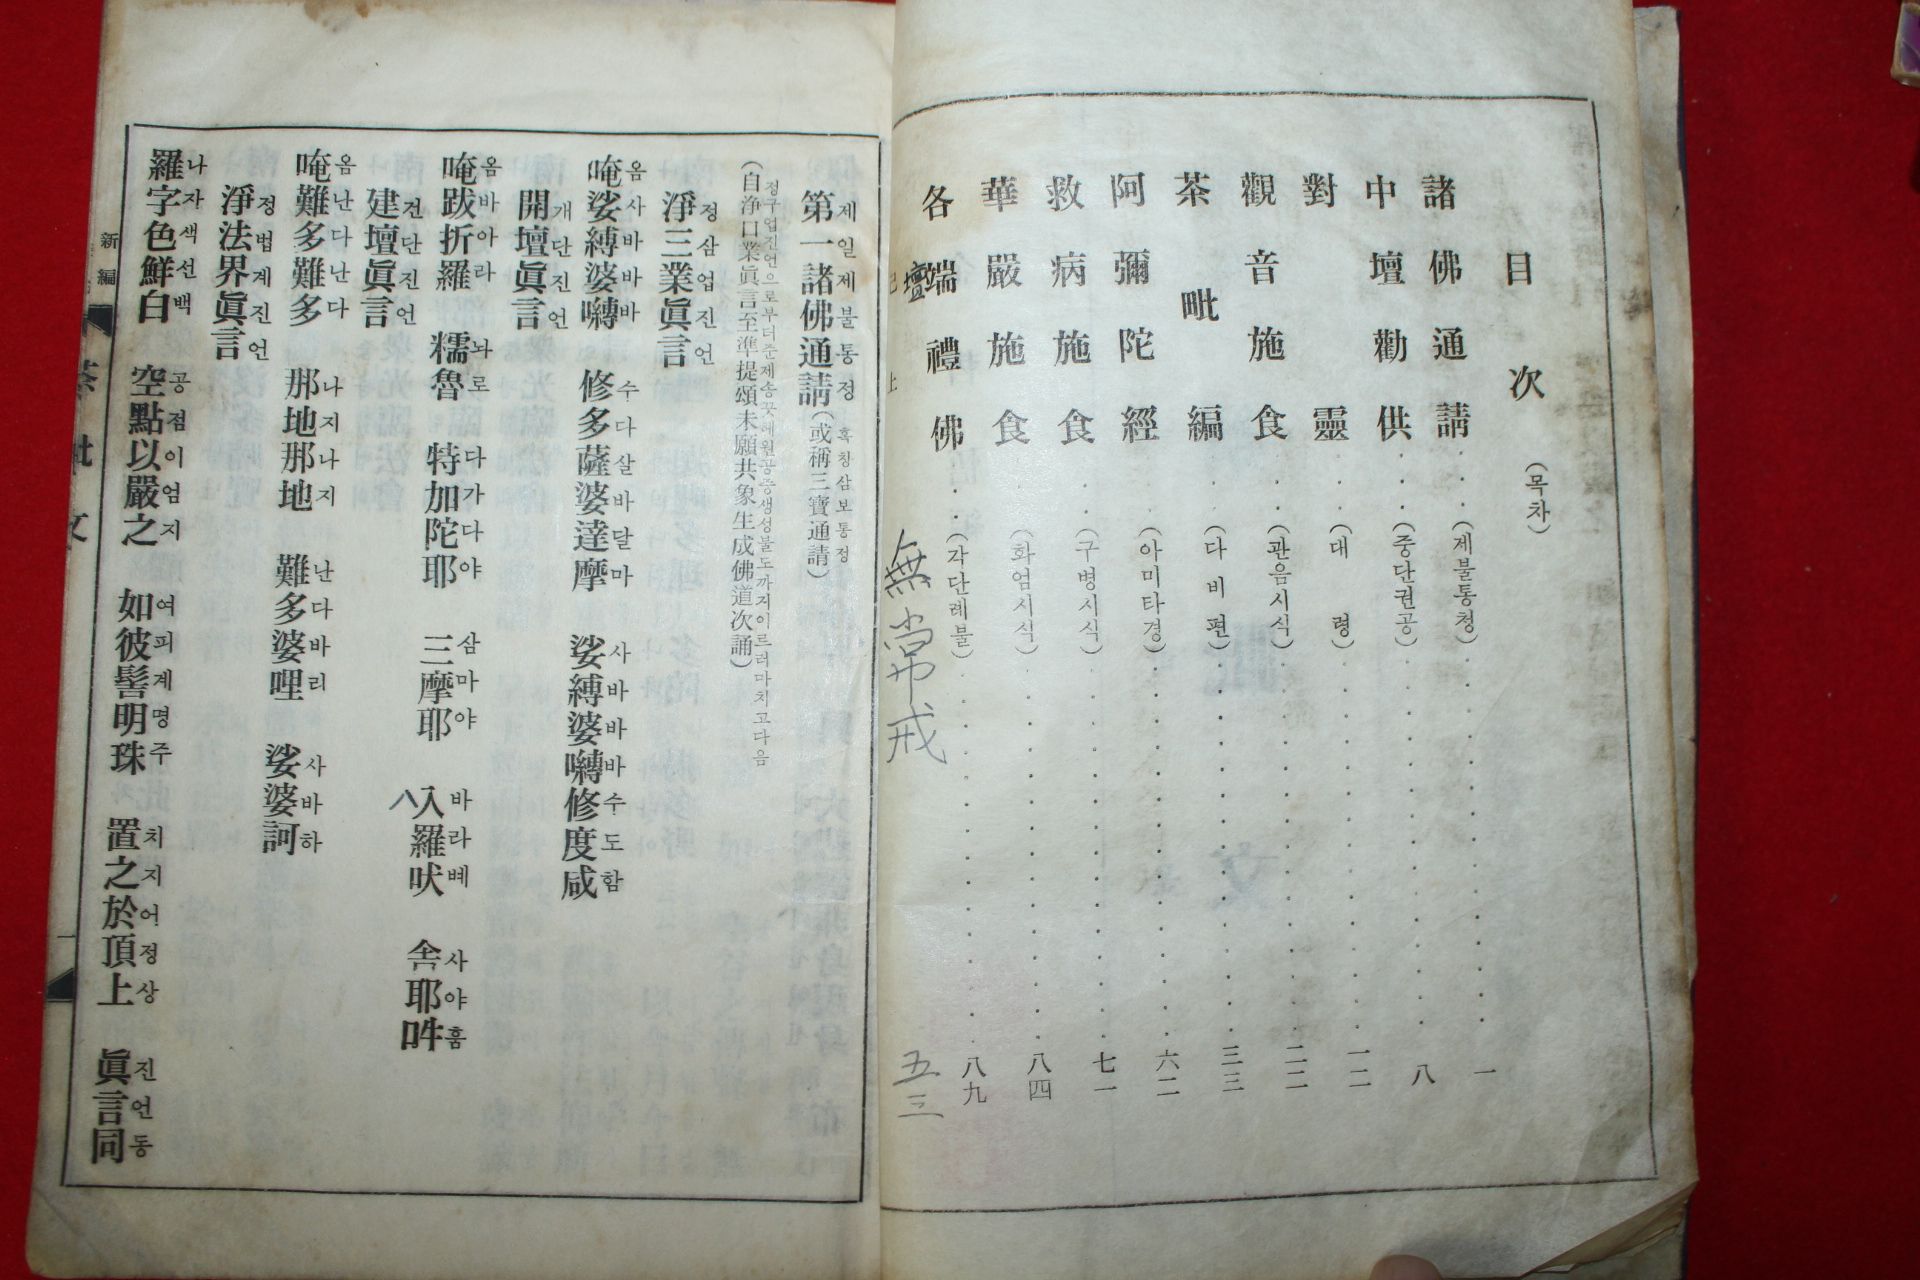 目次(목차)
諸佛通請(제불통청)一
中壇勸供(중단권공)八
對靈(대령)一二
觀音施食(관음시식)二二
茶毗編(다비편)三三
阿彌陀經(아미타경)六二
救病施食(구병시식)七一
華嚴施食(화엄시식)八四
各壇禮佛(각단례불)八九
無常戒 五三
第一諸佛通請(或稱三寶通請)
제일제불통청 혹칭삼보통청
(自淨口業眞言至準提頌末願共衆生成佛道次誦)
정구업진언으로부터준제송끗헤원공중생성불도까지이르러마치고다음
淨三業眞言
정삼업진언
唵娑縛婆嚩 修多薩婆達摩 娑縛婆嚩修度咸
옴사바바바 수다살바달마 사바바바수도함
開壇眞言
개단진언
唵跋折羅 糯魯 特加陀耶 三摩耶 八入羅吠 舍耶吽
옴바아라 놔로 다가다야 삼마야 바라볘 사야훔
建壇眞言
건단진언
唵難多難多 那地那地 難多婆哩 娑婆訶
옴난다난다 나지나지 난다바리 사바하
淨法界眞言
정법계진언
羅字色鮮白 空點以嚴之 如彼髻明珠 置之於頂上 眞言同
나자색선백 공점이엄지 여피계명주 치지어정상 진언동
新編
茶毗文
一